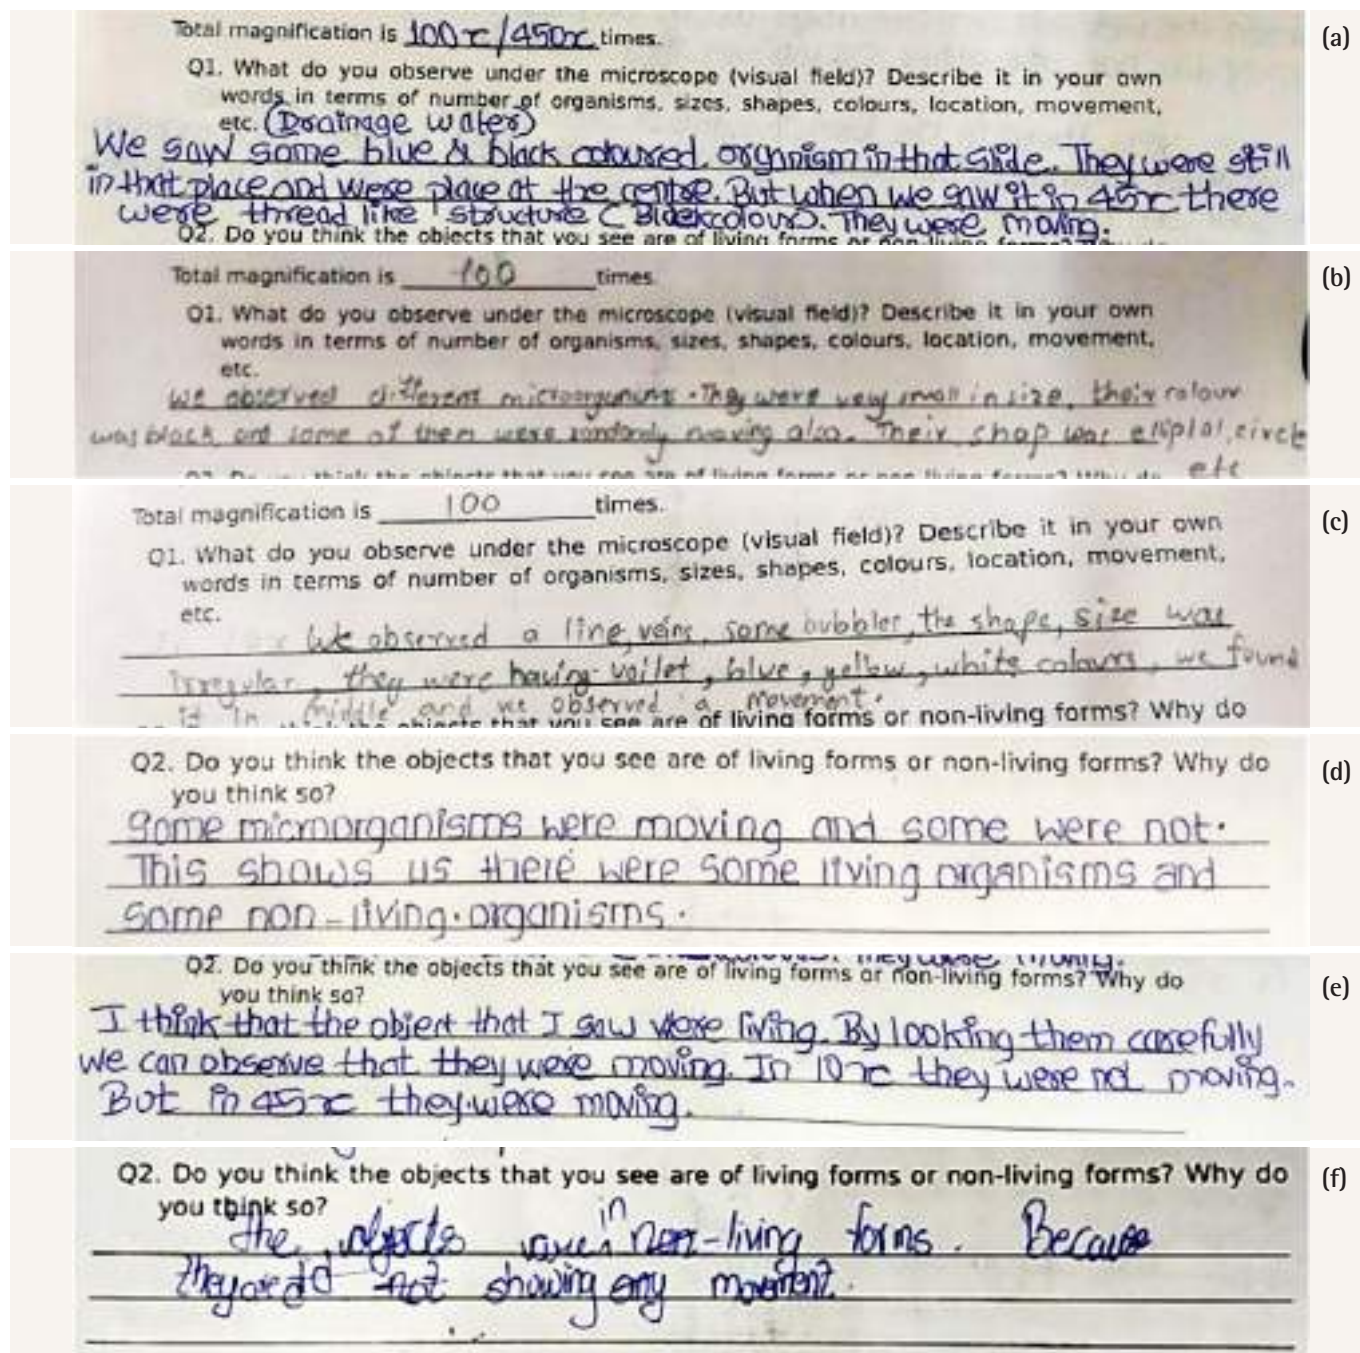 Total magnification is 100x/450x times.
(a)
Q1. What do you observe under the microscope (visual field)? Describe it in your own
words in terms of number of organisms, sizes, shapes, colours, location, movement,
etc. (Drainage water)
We saw some blue & black coloured organism in that slide. They were still
in that place and were place at the centre. But when we saw it in 45x there
were thread like structure (Black colour). They were moving.
Q2. Do you think the objects that you see are of living forms or non-living forms? Why do
Total magnification is 100 times.
(b)
Q1. What do you observe under the microscope (visual field)? Describe it in your own
words in terms of number of organisms, sizes, shapes, colours, location, movement,
etc.
We observed different microorganisms. They were very small in size, their colour
was black and some of them were randomly moving also. Their shap was elliptal, circle
etc
Q2. Do you think the objects that you see are of living forms or non-living forms? Why do
Total magnification is 100 times.
(c)
Q1. What do you observe under the microscope (visual field)? Describe it in your own
words in terms of number of organisms, sizes, shapes, colours, location, movement,
etc.
We observed a line, veins, some bubbles, the shape, size was
irregular, they were having voilet, blue, yellow, white colours, we found
it in middle and we observed a movement.
think the objects that you see are of living forms or non-living forms? Why do
(d)
Q2. Do you think the objects that you see are of living forms or non-living forms? Why do
you think so?
Some microorganisms were moving and some were not.
This shows us there were some living organisms and
some non-living.organisms.
They were moving.
(e)
Q2. Do you think the objects that you see are of living forms or non-living forms? Why do
you think so?
I think that the object that I saw were living. By looking them carefully
we can observe that they were moving. In 10x they were not moving.
But in 45x they were moving.
(f)
Q2. Do you think the objects that you see are of living forms or non-living forms? Why do
you think so?
the objects were in non-living forms. Because
they are not showing any movement.